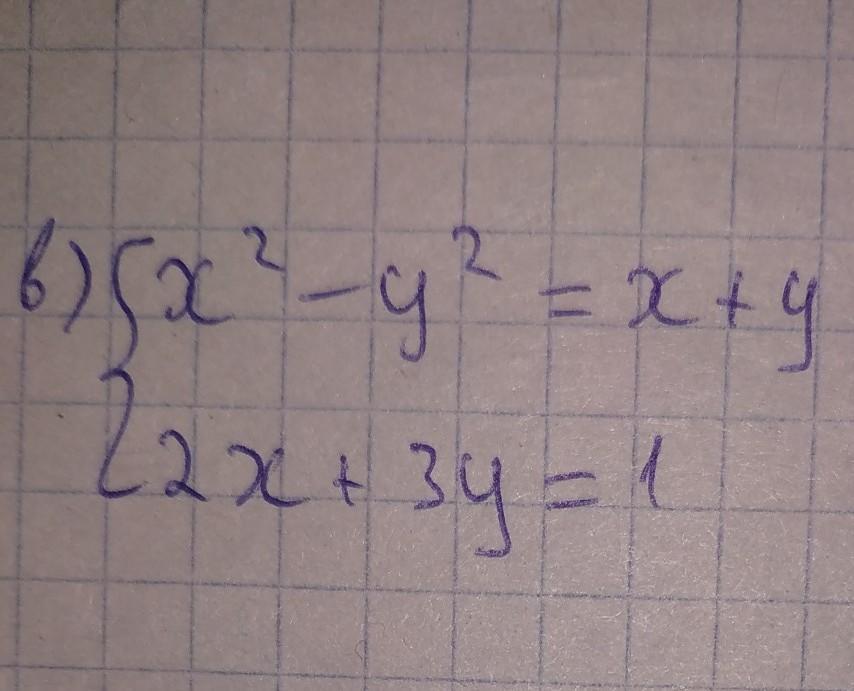 в) { x² - y² = x + y
2x + 3y = 1